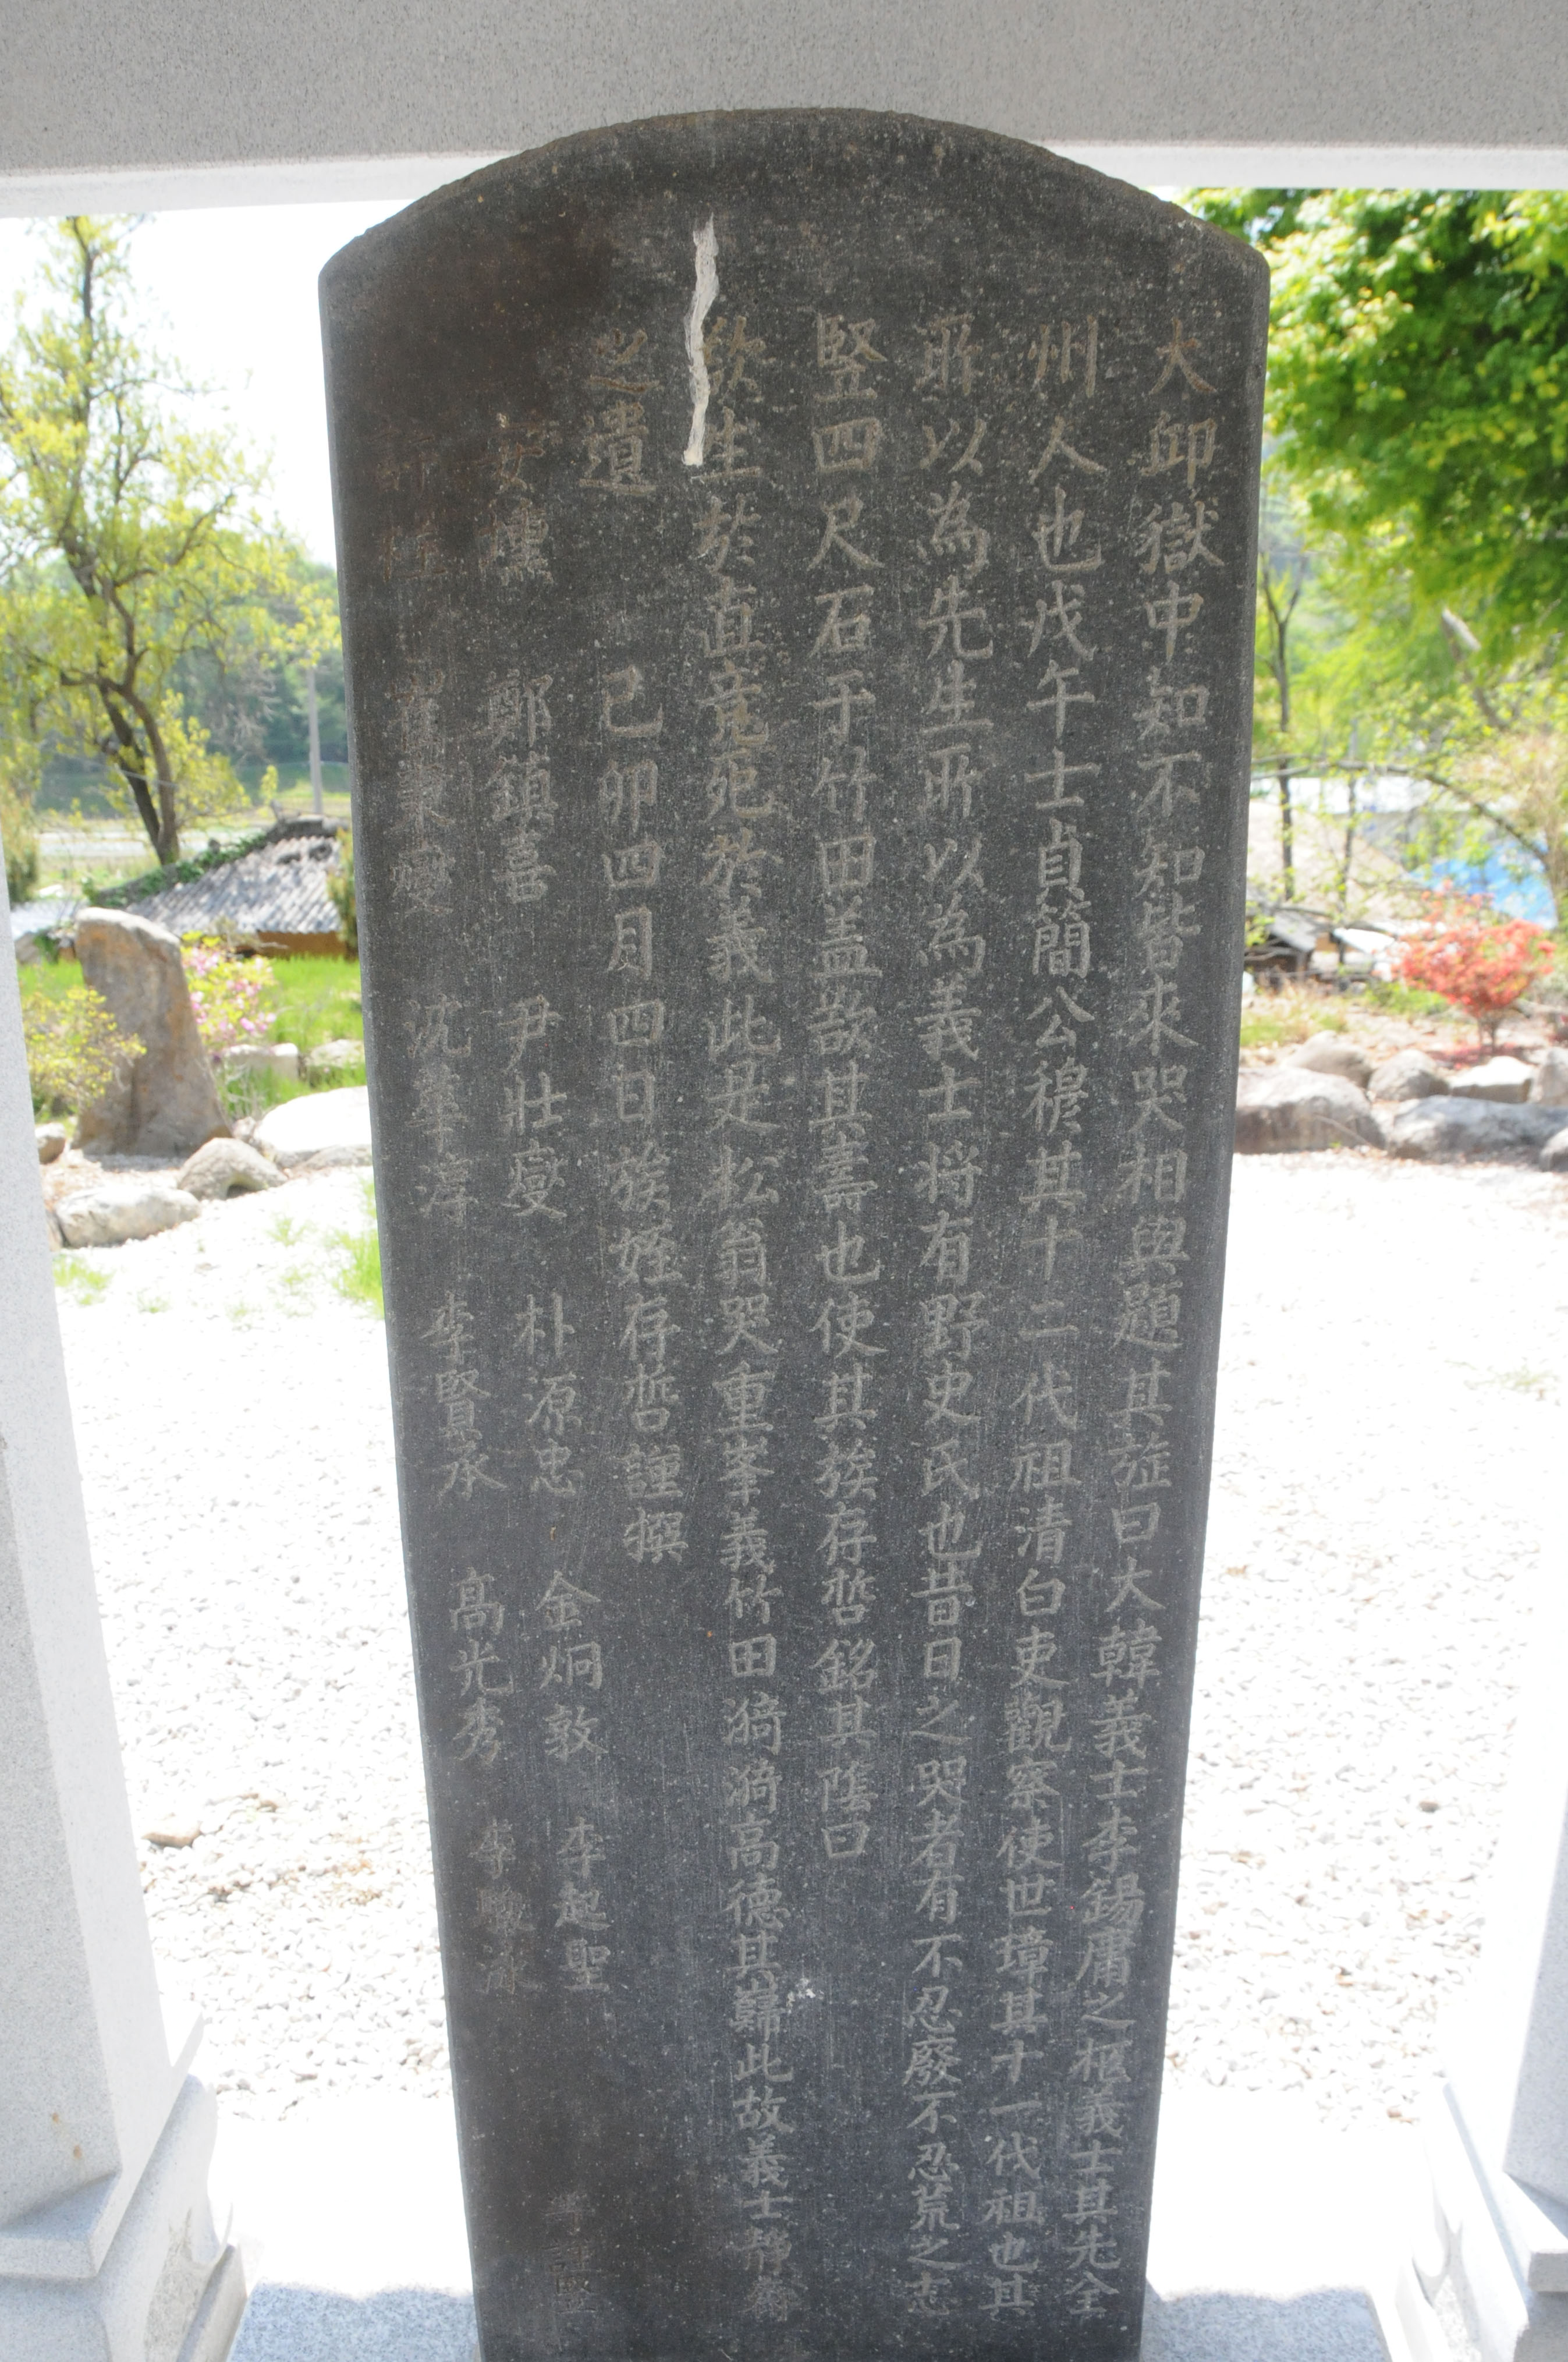 大邱獄中知不知皆來哭相與題其旌曰大韓義士李錫庸之柩義士其先全
州人也戊午士貞簡公穆其十二代祖清白吏觀察使世璋其十一代祖也其
所以為先生所以為義士将有野史氏也昔日之哭者有不忍廢不忍荒之志
竪四尺石于竹田盖欲其壽也使其族存哲銘其陰曰
欽生於直竟死於義此是松翁哭重峯義竹田漪漪高德其歸此故義士靜齋
之遺
己卯四月四日族姪存哲謹撰
安 鄭鎭喜 尹壮燮 朴源忠 金炯敦 李起聖 等謹竪
崔秉燮 沈 李賢承 高光秀 李